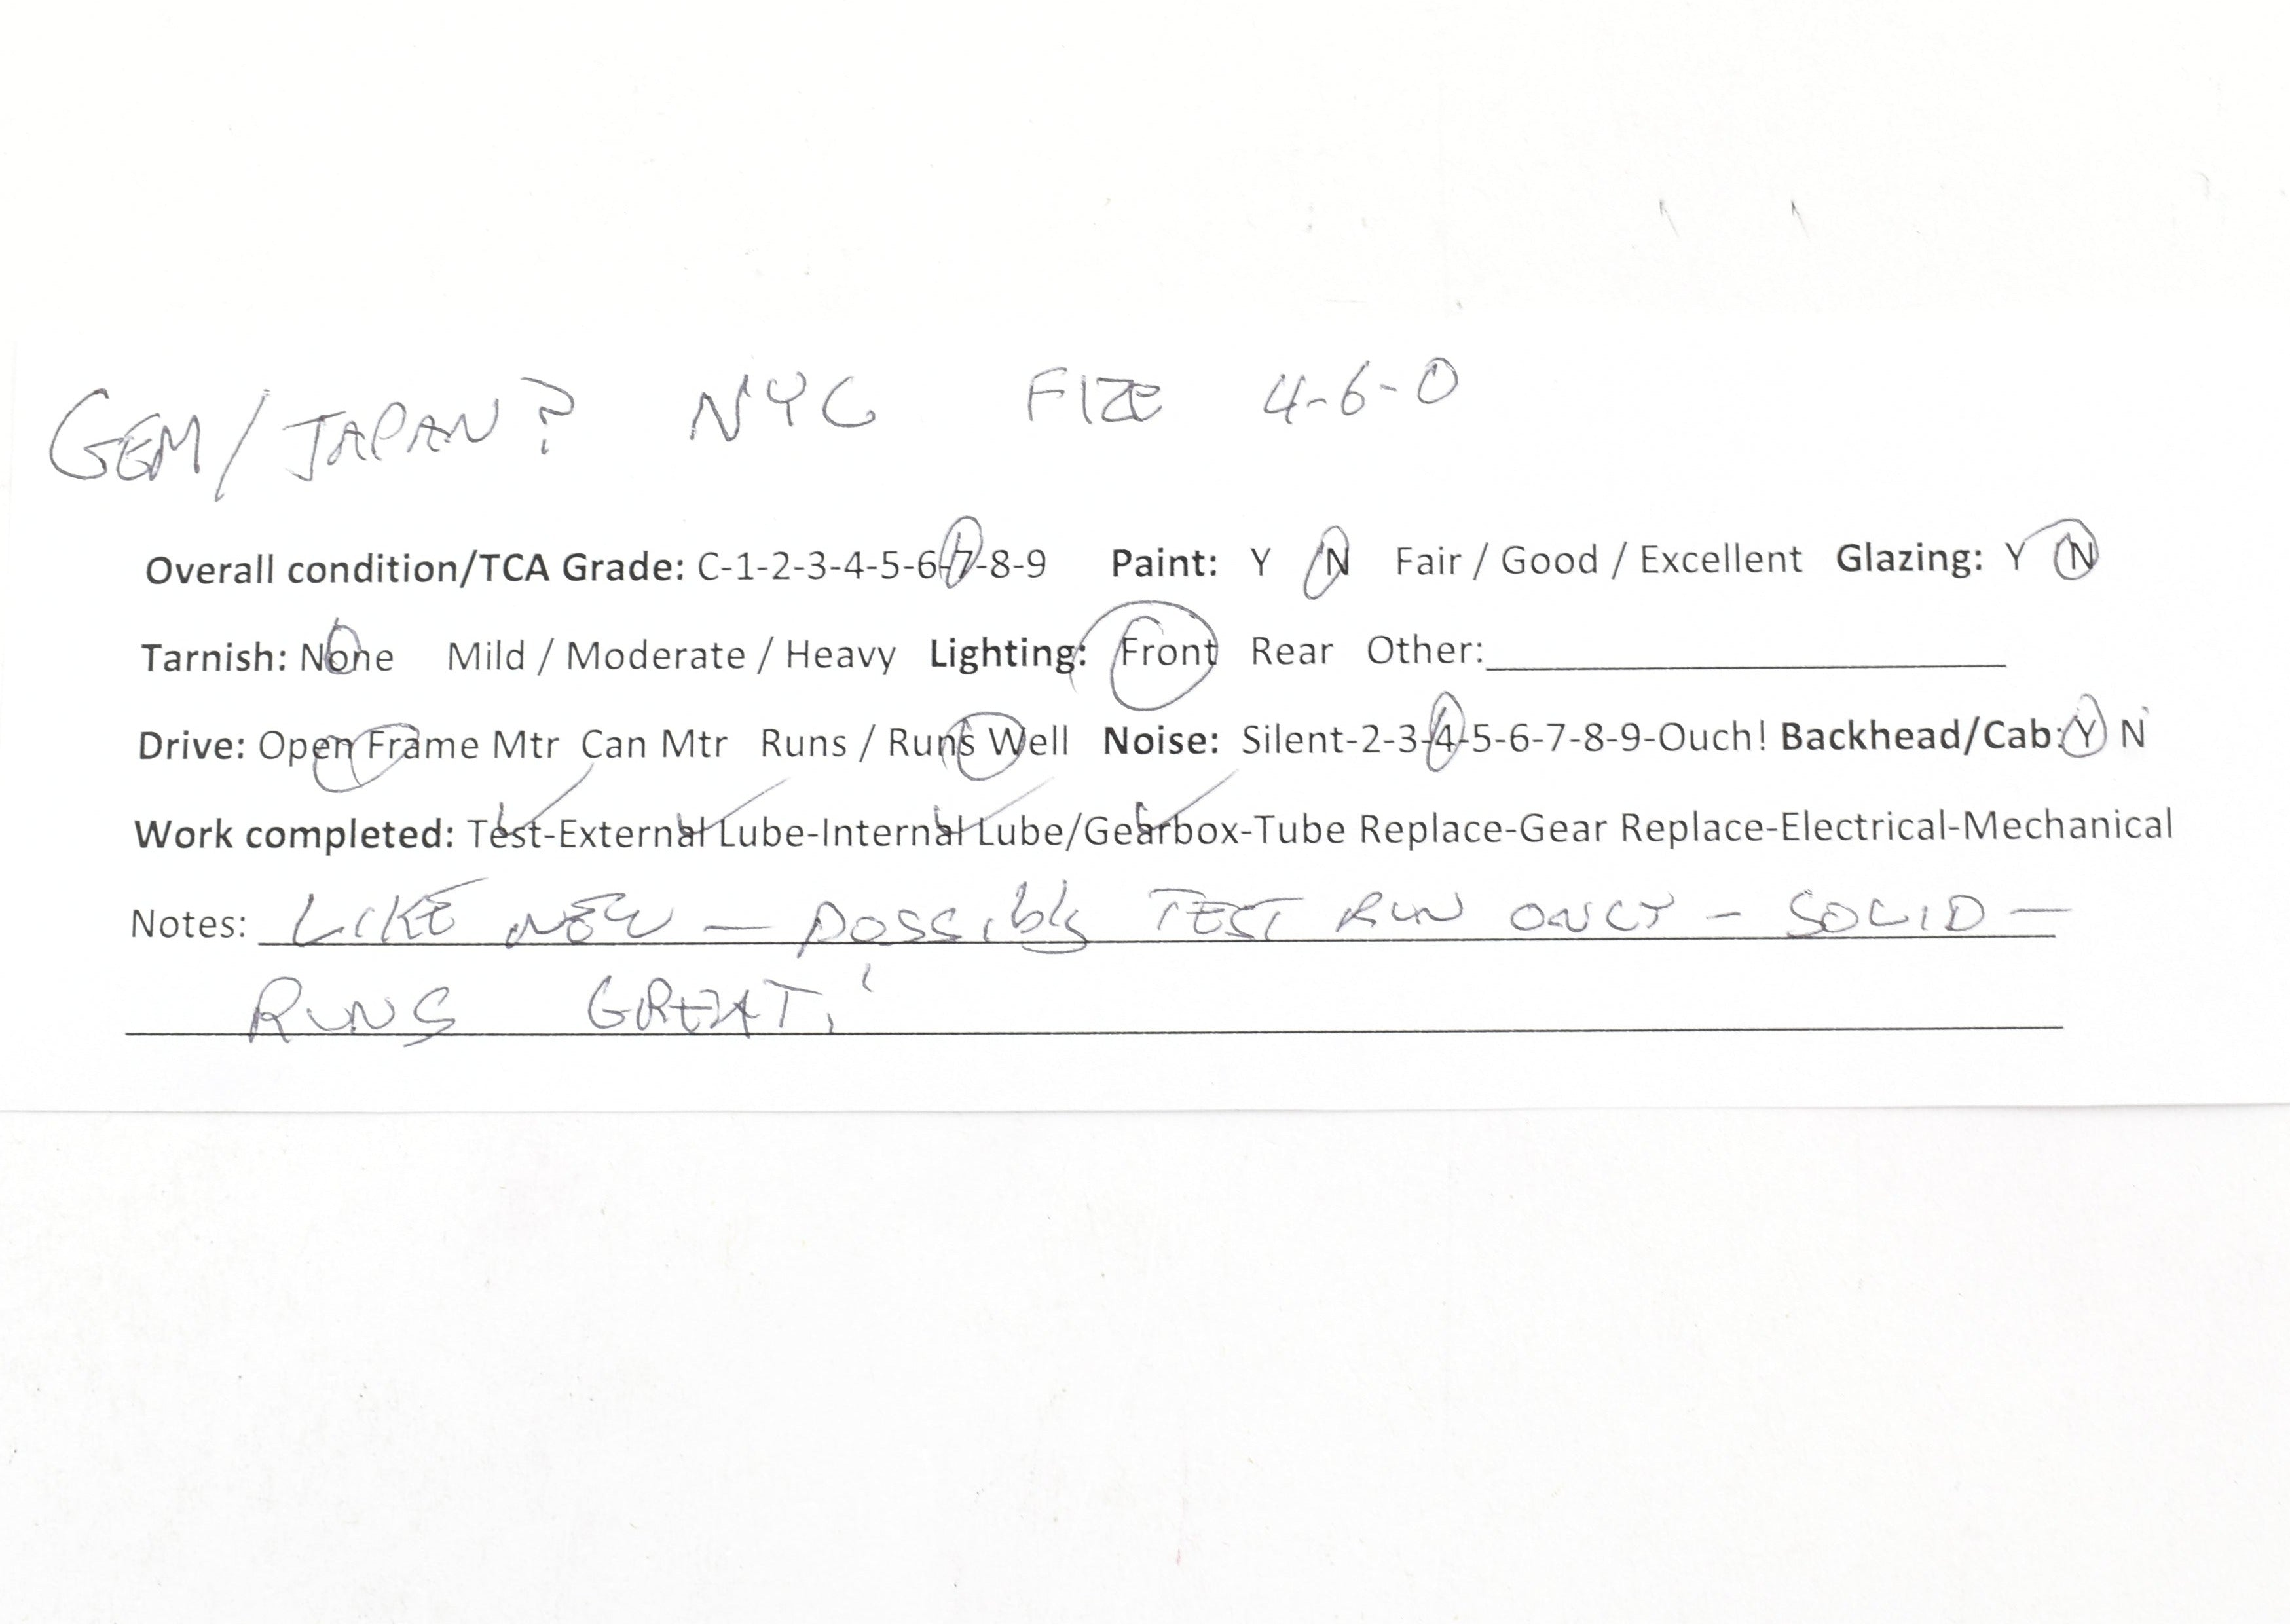 GEM/JAPAN? NYC F12E 4-6-0
Overall condition/TCA Grade: C-1-2-3-4-5-6-7-8-9 Paint: Y N Fair / Good / Excellent Glazing: Y N
Tarnish: None Mild / Moderate / Heavy Lighting: Front Rear Other:
Drive: Open Frame Mtr Can Mtr Runs / Runs Well Noise: Silent-2-3-4-5-6-7-8-9-Ouch! Backhead/Cab: Y N
Work completed: Test-External Lube-Internal Lube/Gearbox-Tube Replace-Gear Replace-Electrical-Mechanical
Notes: LIKE NEW — possibly TEST RUN ONLY — SOLID —
RUNS GREAT!